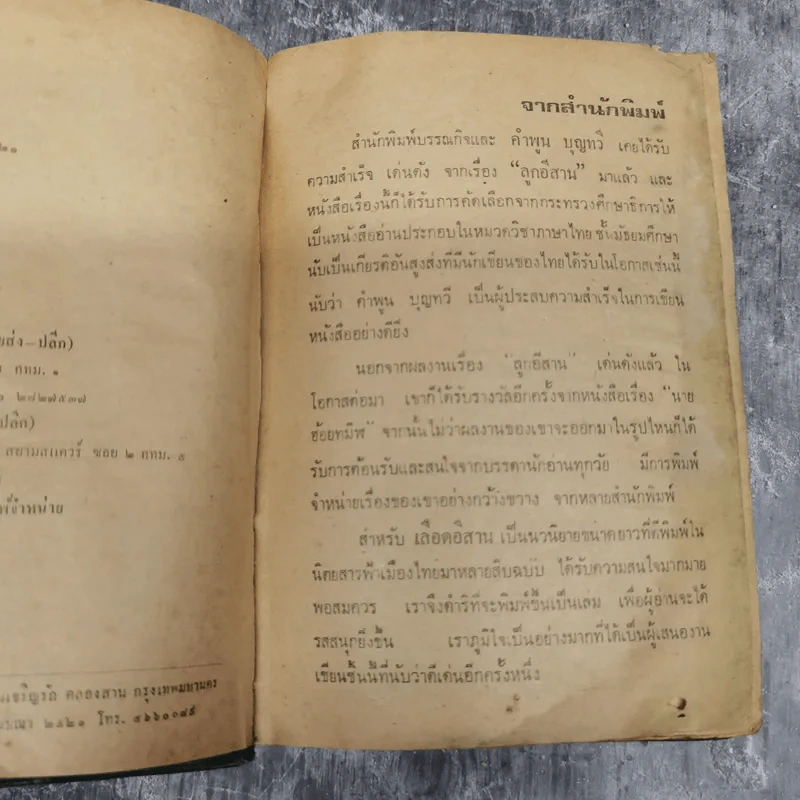 ๒๑
ส่ง-ปลีก)
กทม. ๑
๒๘๒๗๕๓๗
ปลีก)
สยามสแควร์ ซอย ๒ กทม. ๕
จำหน่าย
เจริญรัถ คลองสาน กรุงเทพมหานคร
๒๕๒๑ โทร. ๔๖๖๐๐๔๕
จากสำนักพิมพ์
สำนักพิมพ์บรรณกิจและ คำพูน บุญทวี เคยได้รับ
ความสำเร็จ เด่นดัง จากเรื่อง “ลูกอีสาน” มาแล้ว และ
หนังสือเรื่องนี้ก็ได้รับการคัดเลือกจากกระทรวงศึกษาธิการให้
เป็นหนังสืออ่านประกอบในหมวดวิชาภาษาไทย ชั้นมัธยมศึกษา
นับเป็นเกียรติอันสูงส่งที่มีนักเขียนของไทยได้รับในโอกาสเช่นนี้
นับว่า คำพูน บุญทวี เป็นผู้ประสบความสำเร็จในการเขียน
หนังสืออย่างดียิ่ง
นอกจากผลงานเรื่อง “ลูกอีสาน” เด่นดังแล้ว ใน
โอกาสต่อมา เขาก็ได้รับรางวัลอีกครั้งจากหนังสือเรื่อง “นาย
ฮ้อยทมิฬ” จากนั้นไม่ว่าผลงานของเขาจะออกมาในรูปไหนก็ได้
รับการต้อนรับและสนใจจากบรรดานักอ่านทุกวัย มีการพิมพ์
จำหน่ายเรื่องของเขาอย่างกว้างขวาง จากหลายสำนักพิมพ์
สำหรับ เลือดอีสาน เป็นนวนิยายขนาดยาวที่ตีพิมพ์ใน
นิตยสารฟ้าเมืองไทยมาหลายสิบฉบับ ได้รับความสนใจมากมาย
พอสมควร เราจึงดำริที่จะพิมพ์ขึ้นเป็นเล่ม เพื่อผู้อ่านจะได้
รสสนุกยิ่งขึ้น เราภูมิใจเป็นอย่างมากที่ได้เป็นผู้เสนองาน
เขียนชิ้นนี้ที่นับว่าดีเด่นอีกครั้งหนึ่ง